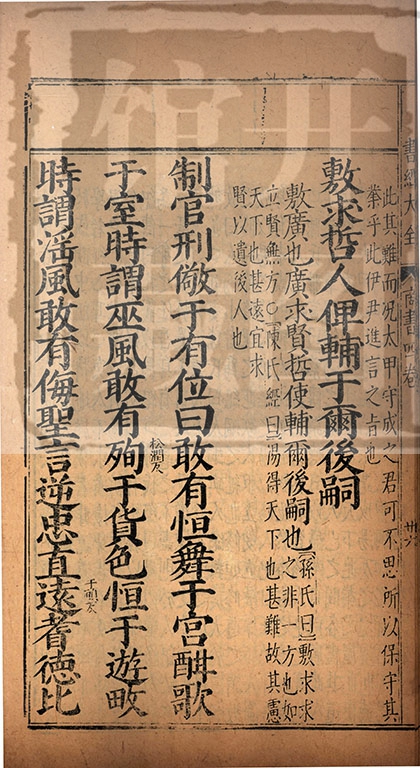 書經大全
書四卷
卅六
此其難而况太甲守成之君可不思所以保守其
拳乎此伊尹進言之旨也
敷求哲人俾輔于爾後嗣
敷廣也廣求賢哲使輔爾後嗣也孫氏曰敷求求
之非一方也如
立賢無方○陳氏經曰湯得天下也甚難故其慮
天下也甚遠宜求
賢以遺後人也
制官刑儆于有位曰敢有恒舞于宮酣歌
于室時謂巫風敢有殉于貨色恒于遊畋
松潤反
時謂滛風敢有侮聖言逆忠直遠耆德比
于願反